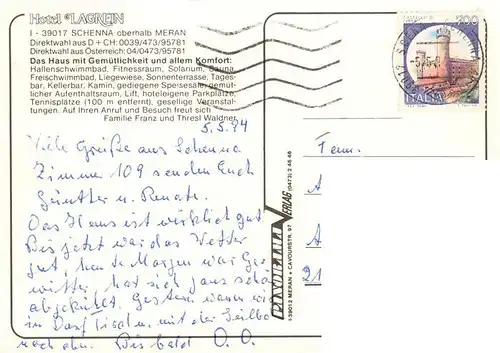 Hotel LAGREIN
I - 39017 SCHENNA oberhalb MERAN
Direktwahl aus D + CH: 0039/473/95781
Direktwahl aus Österreich: 04/0473/95781
Das Haus mit Gemütlichkeit und allem Komfort:
Hallenschwimmbad, Fitnessraum, Solarium, Sauna,
Freischwimmbad, Liegewiese, Sonnenterrasse, Tages-
bar, Kellerbar, Kamin, gediegene Speisesäle, gemüt-
licher Aufenthaltsraum, Lift, hoteleigene Parkplätze,
Tennisplätze (100 m entfernt), gesellige Veranstal-
tungen. Auf Ihren Anruf und Besuch freut sich
Familie Franz und Thresl Waldner
5.5.94
Viele Grüße aus Schenna
Zimmer 109 senden Euch
Günther u. Renate.
Das Haus ist wirklich gut
Bis jetzt war das Wetter
gut, heute Morgen war Ge-
witter, hat sich ganz schön
abgekühlt. Gestern waren wir
in Dorf Tirol mit der Seilba
nach oben. Bis bald O. O.
VERLAG (0473) 2 46 46
I-39012 MERAN • CAVOURSTR. 97
700
ITALIA
Fam.
A
A
21